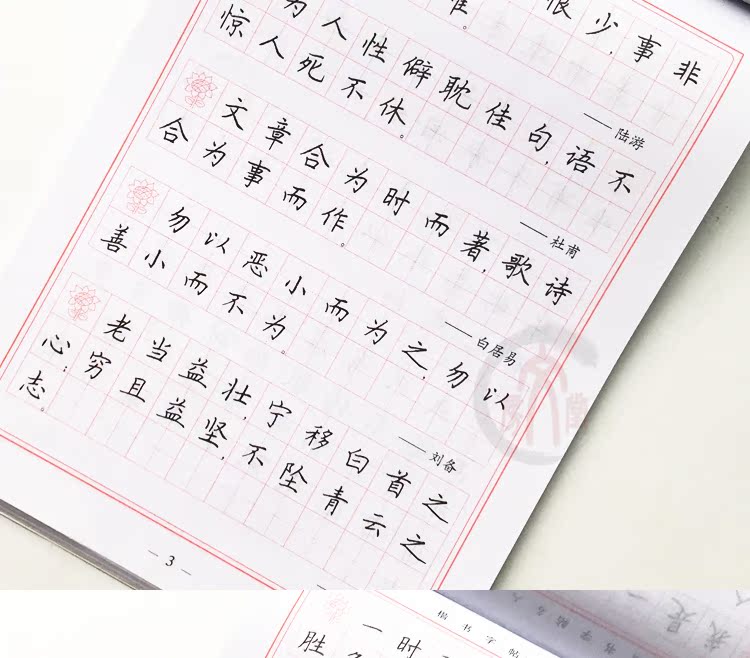 恨少,事非
——陆游
为人性僻耽佳句,语不
惊人死不休。
——杜甫
文章合为时而著,歌诗
合为事而作。
——白居易
勿以恶小而为之,勿以
善小而不为。
——刘备
老当益壮,宁移白首之
心;穷且益坚,不坠青云之
志。
— 3 —
楷书字帖
一时
胜
书字帖
我是一